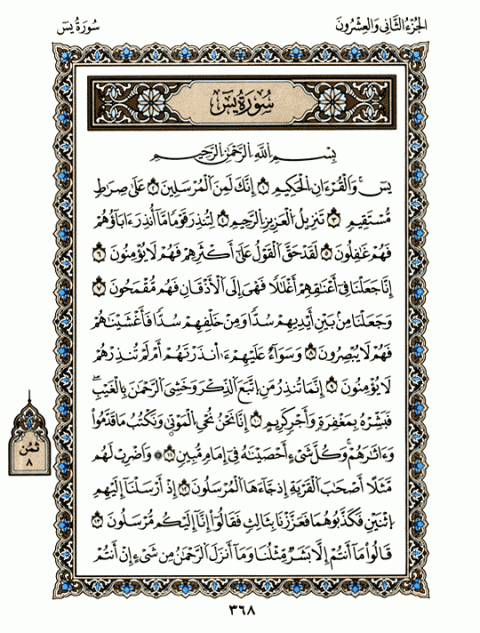 الجُزْءُ الثَّانِى وَالعِشْرُونَ
سُورَةُ يسٓ
سُورَةُ يسٓ
بِسْمِ اللَّهِ الرَّحْمَٰنِ الرَّحِيمِ
يسٓ وَالْقُرْءَانِ الْحَكِيمِ ١ إِنَّكَ لَمِنَ الْمُرْسَلِينَ ٢ عَلَىٰ صِرَاطٍ
مُّسْتَقِيمٍ ٣ تَنزِيلُ الْعَزِيزِ الرَّحِيمِ ٤ لِتُنذِرَ قَوْمًا مَّا أُنذِرَ ءَابَاؤُهُمْ
فَهُمْ غَٰفِلُونَ ٥ لَقَدْ حَقَّ الْقَوْلُ عَلَىٰ أَكْثَرِهِمْ فَهُمْ لَا يُؤْمِنُونَ ٦
إِنَّا جَعَلْنَا فِى أَعْنَٰقِهِمْ أَغْلَٰلًا فَهِىَ إِلَى الْأَذْقَانِ فَهُم مُّقْمَحُونَ ٧
وَجَعَلْنَا مِنۢ بَيْنِ أَيْدِيهِمْ سُدًّا وَمِنْ خَلْفِهِمْ سُدًّا فَأَغْشَيْنَٰهُمْ
فَهُمْ لَا يُبْصِرُونَ ٨ وَسَوَآءٌ عَلَيْهِمْ ءَأَنذَرْتَهُمْ أَمْ لَمْ تُنذِرْهُمْ
لَا يُؤْمِنُونَ ٩ إِنَّمَا تُنذِرُ مَنِ اتَّبَعَ الذِّكْرَ وَخَشِىَ الرَّحْمَٰنَ بِالْغَيْبِ
فَبَشِّرْهُ بِمَغْفِرَةٍ وَأَجْرٍ كَرِيمٍ ١٠ إِنَّا نَحْنُ نُحْىِ الْمَوْتَىٰ وَنَكْتُبُ مَا قَدَّمُوا
وَءَاثَٰرَهُمْ وَكُلَّ شَىْءٍ أَحْصَيْنَٰهُ فِى إِمَامٍ مُّبِينٍ ١١ ۞ وَاضْرِبْ لَهُم
مَّثَلًا أَصْحَٰبَ الْقَرْيَةِ إِذْ جَآءَهَا الْمُرْسَلُونَ ١٢ إِذْ أَرْسَلْنَا إِلَيْهِمُ
اثْنَيْنِ فَكَذَّبُوهُمَا فَعَزَّزْنَا بِثَالِثٍ فَقَالُوا إِنَّا إِلَيْكُم مُّرْسَلُونَ ١٣
قَالُوا مَا أَنتُمْ إِلَّا بَشَرٌ مِّثْلُنَا وَمَا أَنزَلَ الرَّحْمَٰنُ مِن شَىْءٍ إِنْ أَنتُمْ
ثُمُن
٨
٣٦٨